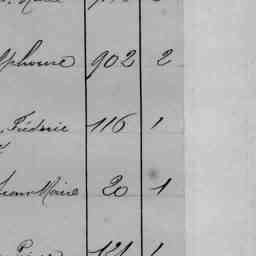 lphonse 902 2
Fréderic 116 1
Jean Marie 20 1
121 1